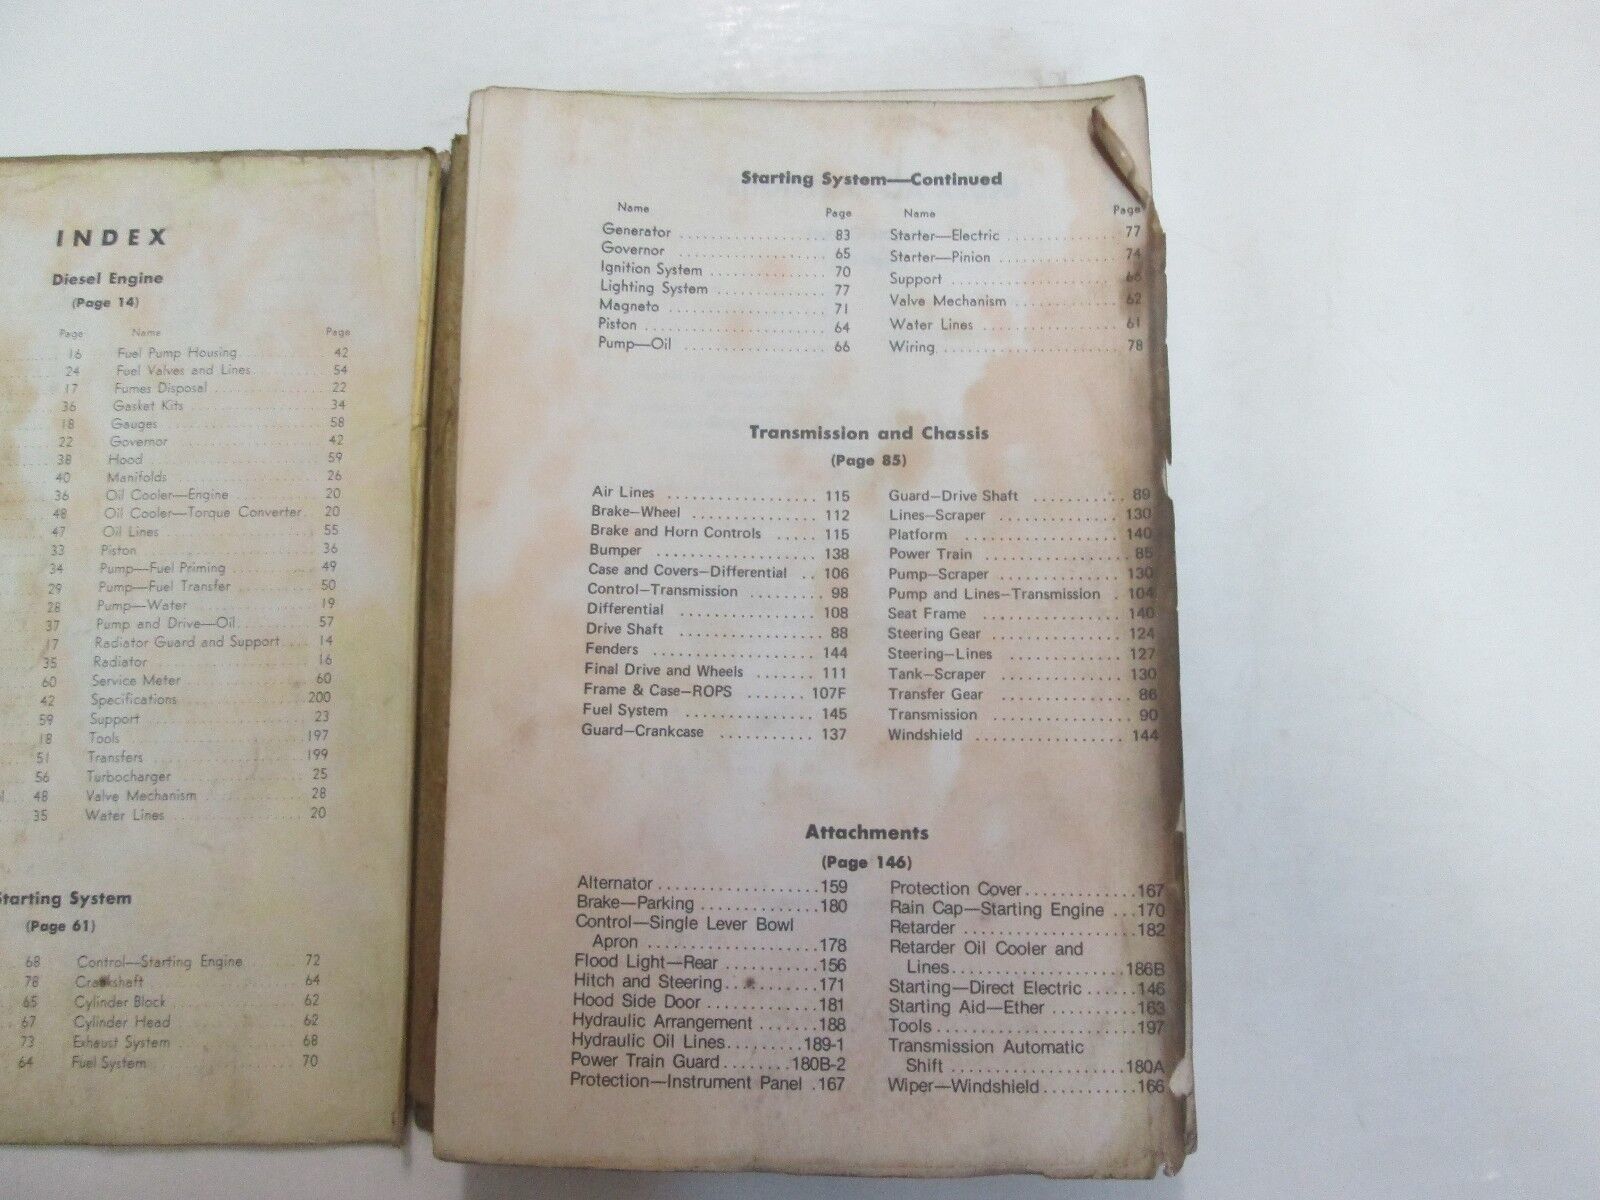 INDEX
Diesel Engine
(Page 14)
Page Name Page
16 Fuel Pump Housing 42
24 Fuel Valves and Lines 54
17 Fumes Disposal 22
36 Gasket Kits 34
18 Gauges 58
22 Governor 42
38 Hood 59
40 Manifolds 26
36 Oil Cooler—Engine 20
48 Oil Cooler—Torque Converter 20
47 Oil Lines 55
33 Piston 36
34 Pump—Fuel Priming 49
29 Pump—Fuel Transfer 50
28 Pump—Water 19
37 Pump and Drive—Oil 57
17 Radiator Guard and Support 14
35 Radiator 16
60 Service Meter 60
42 Specifications 200
59 Support 23
18 Tools 197
51 Transfers 199
56 Turbocharger 25
48 Valve Mechanism 28
35 Water Lines 20
Starting System
(Page 61)
68 Control—Starting Engine 72
78 Crankshaft 64
65 Cylinder Block 62
67 Cylinder Head 62
73 Exhaust System 68
64 Fuel System 70
Starting System—Continued
Name Page Name Page
Generator 83 Starter—Electric 77
Governor 65 Starter—Pinion 74
Ignition System 70 Support 66
Lighting System 77 Valve Mechanism 62
Magneto 71 Water Lines 61
Piston 64 Wiring 78
Pump—Oil 66
Transmission and Chassis
(Page 85)
Air Lines 115 Guard—Drive Shaft 89
Brake—Wheel 112 Lines—Scraper 130
Brake and Horn Controls 115 Platform 140
Bumper 138 Power Train 85
Case and Covers—Differential 106 Pump—Scraper 130
Control—Transmission 98 Pump and Lines—Transmission 104
Differential 108 Seat Frame 140
Drive Shaft 88 Steering Gear 124
Fenders 144 Steering—Lines 127
Final Drive and Wheels 111 Tank—Scraper 130
Frame & Case—ROPS 107F Transfer Gear 86
Fuel System 145 Transmission 90
Guard—Crankcase 137 Windshield 144
Attachments
(Page 146)
Alternator 159 Protection Cover 167
Brake—Parking 180 Rain Cap—Starting Engine 170
Control—Single Lever Bowl Retarder 182
Apron 178 Retarder Oil Cooler and
Flood Light—Rear 156 Lines 186B
Hitch and Steering 171 Starting—Direct Electric 146
Hood Side Door 181 Starting Aid—Ether 163
Hydraulic Arrangement 188 Tools 197
Hydraulic Oil Lines 189-1 Transmission Automatic
Power Train Guard 180B-2 Shift 180A
Protection—Instrument Panel 167 Wiper—Windshield 166